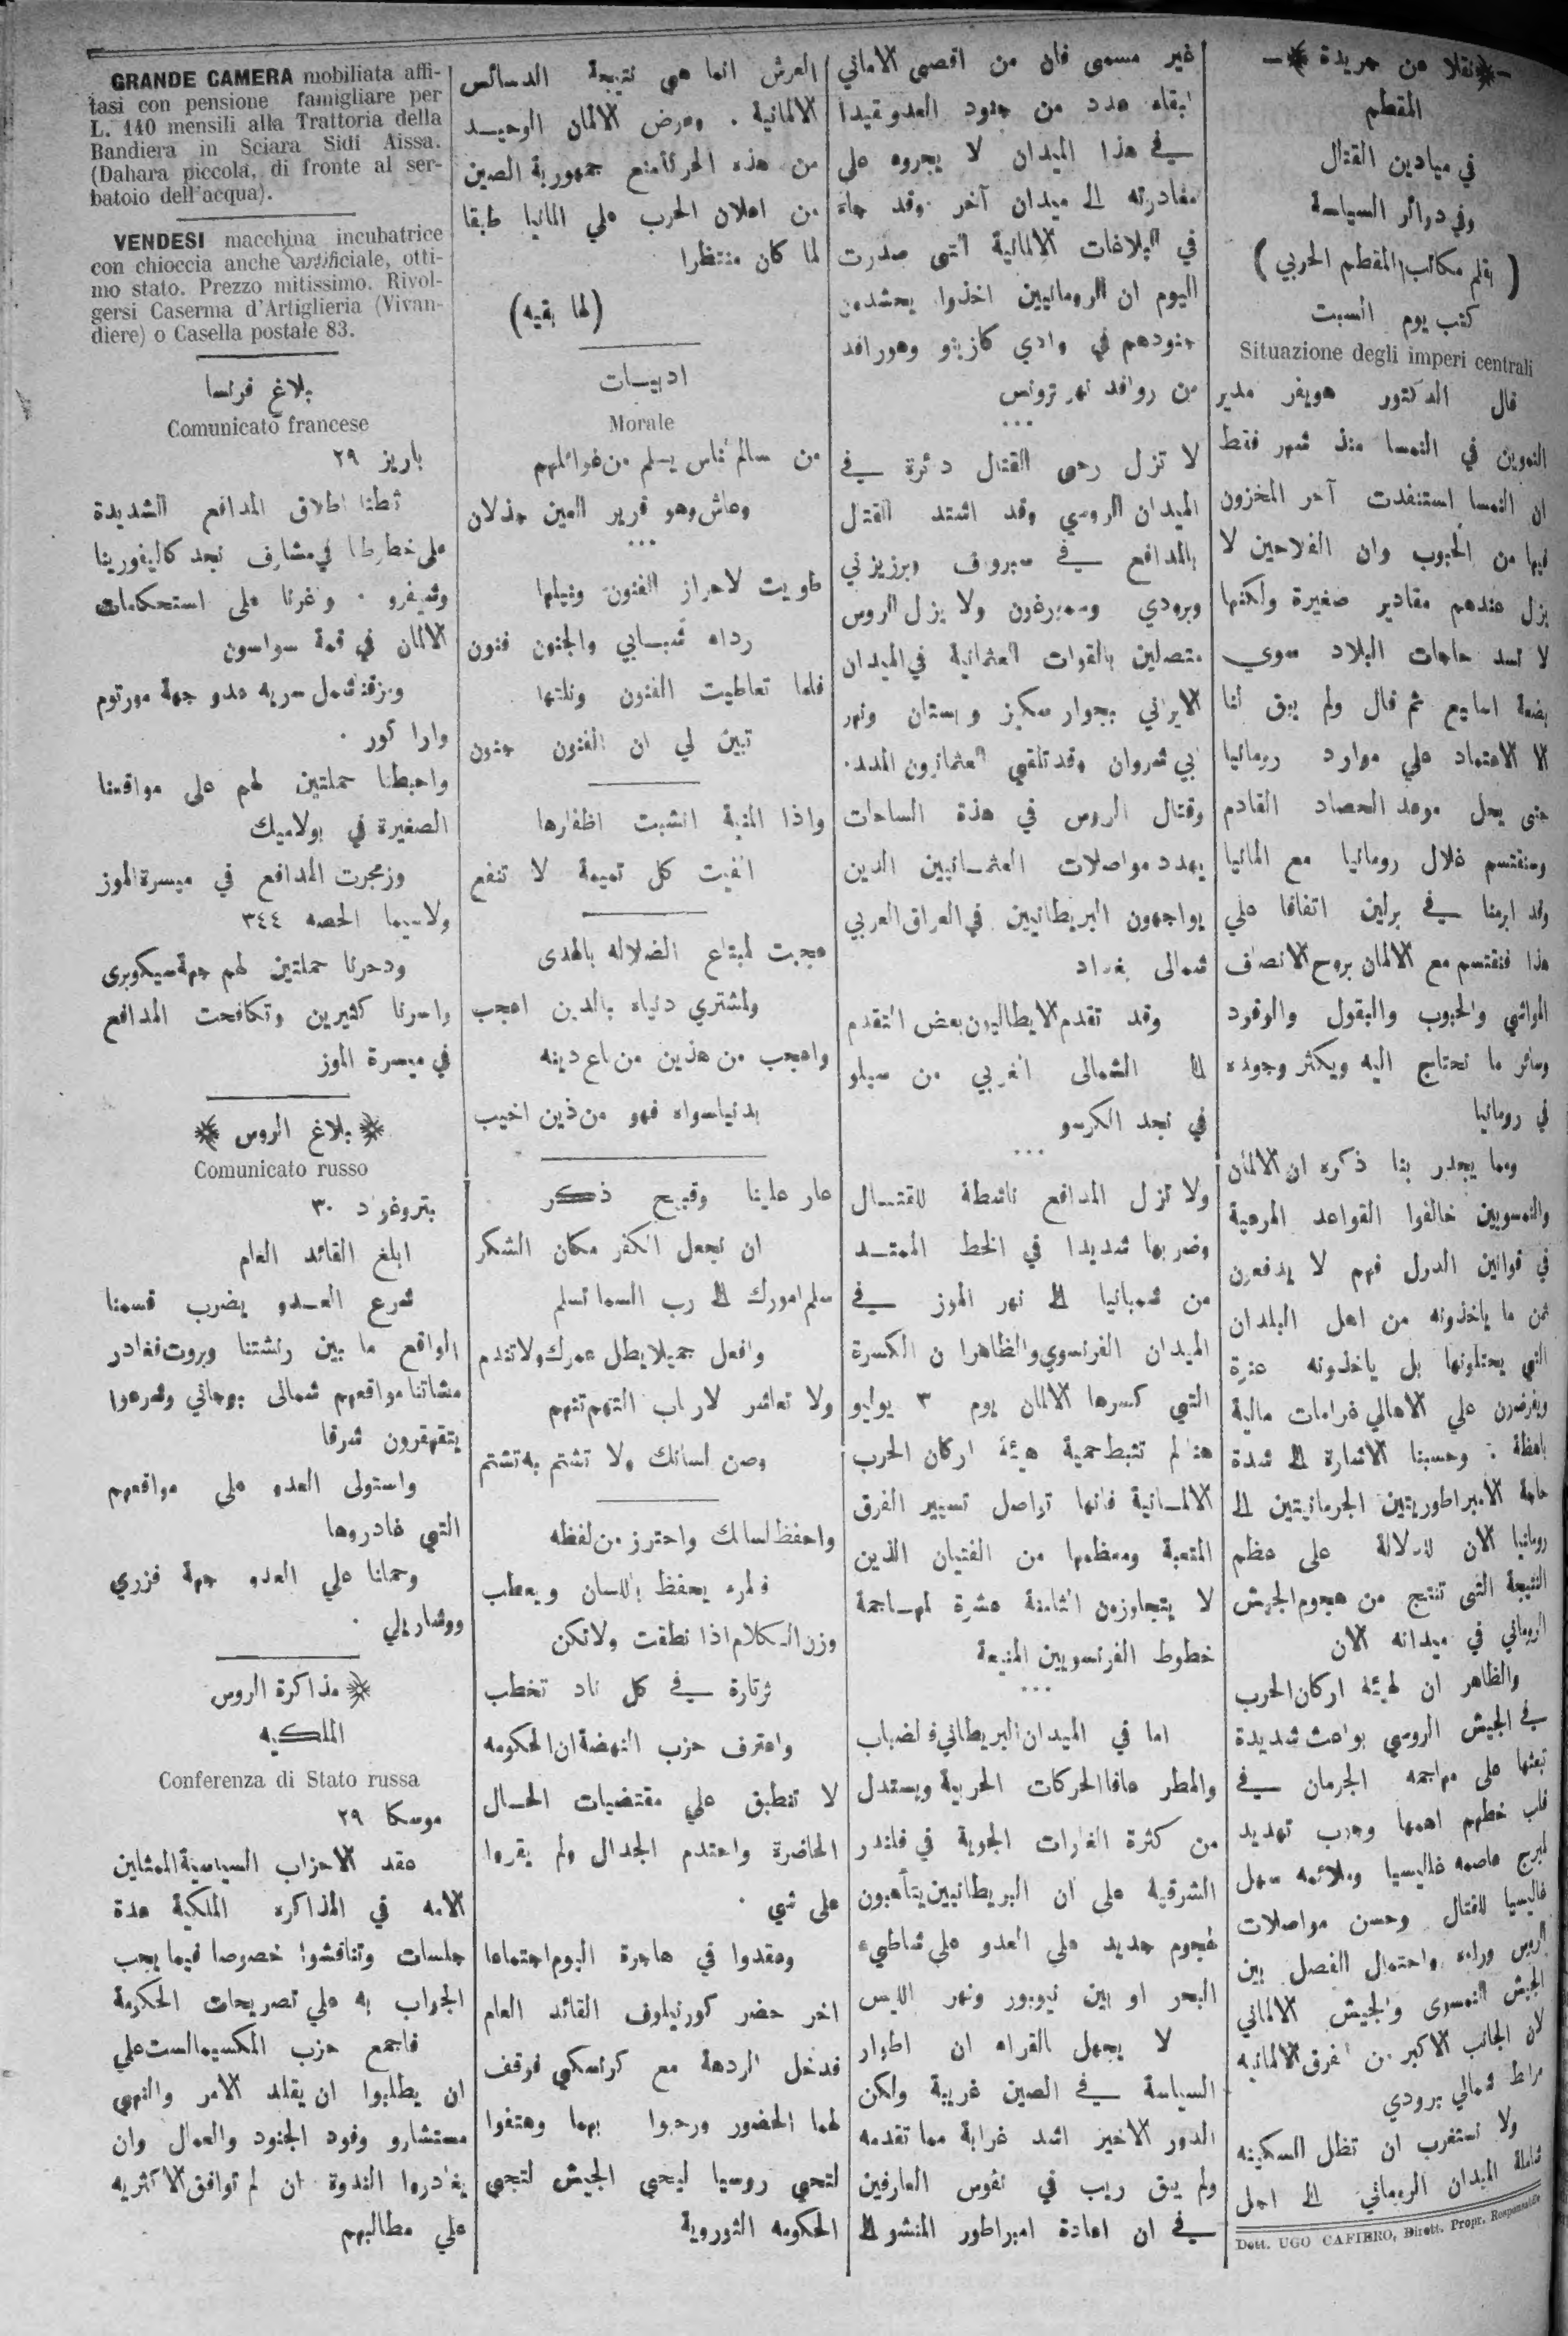 نقلا عن جريدة
المقطم
في ميادين القتال
وفي دوائر السياسة
( بقلم مكاتب المقطم الحربي )
كتب يوم السبت
Situazione degli imperi centrali
قال الدكتور هويفر مدير
التموين في النمسا منذ شهر فقط
ان النمسا استنفدت آخر المخزون
فيها من الحبوب وان الفلاحين لا
يزل عندهم مقادير صغيرة ولكنها
لا تسد حاجات البلاد سوي
بضعة اسابيع ثم قال ولم يبق لنا
الا الاعتماد علي موارد رومانيا
حتى يحل موعد الحصاد القادم
وسنقتسم غلال رومانيا مع المانيا
وقد ابرمنا في برلين اتفاقا علي
هذا فنقتسم مع الالمان بروح الانصاف
المواشي والحبوب والبقول والوقود
وسائر ما نحتاج اليه ويكثر وجوده
في رومانيا
ومما يجدر بنا ذكره ان الالمان
والنمسويين خالفوا القواعد المرعية
في قوانين الدول فهم لا يدفعون
ثمن ما ياخذونه من اهل البلدان
التي يحتلونها بل ياخذونه عنوة
ويفرضون علي الاهالي غرامات مالية
باهظة . وحسبنا الاشارة الى شدة
حاجة الامبراطوريتين الجرمانيتين الى
رومانيا الان للدلالة على عظم
النتيجة التى تنتج من هجوم الجيش
الروماني في ميدانه الان
والظاهر ان لهيئة اركان الحرب
في الجيش الروسي بواعث شديدة
تبعثها على مهاجمه الجرمان في
قلب خطهم اهمها وجوب تهديد
لمبرج عاصمه غاليسيا وملائمه سهل
غاليسيا للقتال وحسن مواصلات
الروس وراءه واحتمال الفصل بين
الجيش النمسوى والجيش الالماني
لان الجانب الاكبر من الفرق الالمانيه
مرابط شمالي برودي
ولا نستغرب ان تظل السكينه
شاملة الميدان الروماني الى اجل
Dott. UGO CAFIERO, Dirett. Propr. Responsabile
غير مسمى فان من اقصى الاماني
ابقاء عدد من جنود العدو مقيدا
في هذا الميدان لا يجروه على
مغادرته الى ميدان آخر وقد جاء
في البلاغات الالمانية التى صدرت
اليوم ان الرومانيين اخذوا يحشدون
جنودهم في وادي كازينو وهو رافد
من روافد نهر تروتس
...
لا تزل رحى القتال دائرة في
الميدان الروسي وقد اشتد القتال
بالمدافع في سبروف وبرزيزني
وبرودي وسمبرغرن ولا يزل الروس
متصلين بالقوات العثمانية في الميدان
الايراني بجوار سكيز و بستان ونهر
ابي شروان وقد تلقى العثمانيون المدد.
وقتال الروس في هذة الساحات
يهدد مواصلات العثمانيين الدين
يواجهون البريطانيين في العراق العربي
شمالى بغداد
وقد تقدم الايطاليون بعض التقدم
الى الشمالى الغربي من سيلو
في نجد الكرسو
...
ولا تزل المدافع ناشطة للقتال
وضربها شديدا في الخط الممتد
من شمبانيا الى نهر الموز في
الميدان الفرنسوي والظاهر ان الكسرة
التي كسرها الالمان يوم ٣ يوليو
هنا لم تثبط حمية هيئة اركان الحرب
الالمانية فانها تواصل تسيير الفرق
المتعبة ومعظمها من الفتيان الذين
لا يتجاوزون الثامنة عشرة لمهاجمة
خطوط الفرنسويين المنيعة
...
اما في الميدان البريطاني فالضباب
والمطر عاقا الحركات الحربية ويستدل
من كثرة الغارات الجوية في فلندر
الشرقيه على ان البريطانيين يتأهبون
لهجوم جديد على العدو على شاطيء
البحر او بين نيوبور ونهر الليس
لا يجهل القراء ان اطوار
السياسة في الصين غريبة ولكن
الدور الاخير اشد غرابة مما تقدمه
ولم يبق ريب في نفوس العارفين
في ان اعادة امبراطور المنشو الى
العرش انما هى نتيجة الدسائس
الالمانية . وغرض الالمان الوحيد
من هذه الحركة منع جمهورية الصين
من اعلان الحرب على المانيا طبقا
لما كان منتظرا
(لها بقيه)
ادبيات
Morale
من سالم الناس يسلم من غوائلهم
وعاش وهو قرير العين جذلان
...
طويت لاحراز الفنون ونيلها
رداء شبابي والجنون فنون
فلما تعاطيت الفنون ونلتها
تبين لي ان الفنون جنون
واذا المنية انشبت اظفارها
الفيت كل تميمة لا تنفع
عجبت لمبتاع الضلاله بالهدى
ولمشتري دنياه بالدين اعجب
واعجب من هذين من باع دينه
بدنيا سواه فهو من ذين اخيب
عار علينا وقبيح ذكر
ان نجعل الكفر مكان الشكر
سلم امورك الى رب السما تسلم
وافعل جميلا يطل عمرك ولا تندم
ولا تعاشر لارباب التهم تتهم
وصن لسانك ولا تشتم به تشتم
واحفظ لسانك واحترز من لفظه
فالمرء يحفظ باللسان ويعطب
وزن الكلام اذا نطقت ولا تكن
ثرثارة في كل ناد تخطب
واعترف حزب النهضة ان الحكومه
لا تنطبق علي مقتضيات الحال
الحاضرة واحتدم الجدال ولم يقروا
على شي .
وعقدوا في هاجرة اليوم اجتماعا
اخر حضر كورنيلوف القائد العام
فدخل الردهة مع كرنسكي فوقف
لهما الحضور ورحبوا بهما وهتفوا
لتحي روسيا ليحى الجيش لتحي
الحكومه الثوروية
GRANDE CAMERA mobiliata affi-
tasi con pensione famigliare per
L. 140 mensili alla Trattoria della
Bandiera in Sciara Sidi Aissa.
(Dahara piccola, di fronte al ser-
batoio dell'acqua).
VENDESI macchina incubatrice
con chioccia anche artificiale, otti-
mo stato. Prezzo mitissimo. Rivol-
gersi Caserma d'Artiglieria (Vivan-
diere) o Casella postale 83.
بلاغ فرنسا
Comunicato francese
باريز ٢٩
اطلاق المدافع الشديدة
على خطوطنا في مشارف نجد كاليفورينا
وشيفرو . وغرنا على استحكامات
الالمان في قمة سواسون
ومزقنا شمل سريه عدو جهة مورتوم
وارا كور .
واحبطنا حملتين لهم على مواقعنا
الصغيرة في بولاميك
وزمجرت المدافع في ميسرة الموز
ولاسيما الحصه ٣٤٤
ودحرنا حملتين لهم جهة سيكوبرى
واسرنا كثيرين وتكافحت المدافع
في ميسرة الموز
بلاغ الروس
Comunicato russo
بتروغراد ٣٠
ابلغ القائد العام
شرع العدو يضرب قسمنا
الواقع ما بين رنشتنا وبروت فغادر
مشاتنا مواقعهم شمالى بوجاني وشرعوا
يتقهقرون شرقا
واستولى العدو على مواقعهم
التي غادروها
وحملنا علي العدو جهة فزري
ووشاريالي .
مذاكرة الروس
الملكيه
Conferenza di Stato russa
موسكا ٢٩
عقد الاحزاب السياسية الممثلين
الامه في المذاكره الملكية عدة
جلسات وتناقشوا خصوصا فيما يجب
الجواب به علي تصريحات الحكومة
فاجمع حزب المكسيمالست علي
ان يطلبوا ان يقلد الامر والنهي
مستشارو وفود الجنود والعمال وان
يغادروا الندوة ان لم توافق الاكثريه
علي مطالبهم